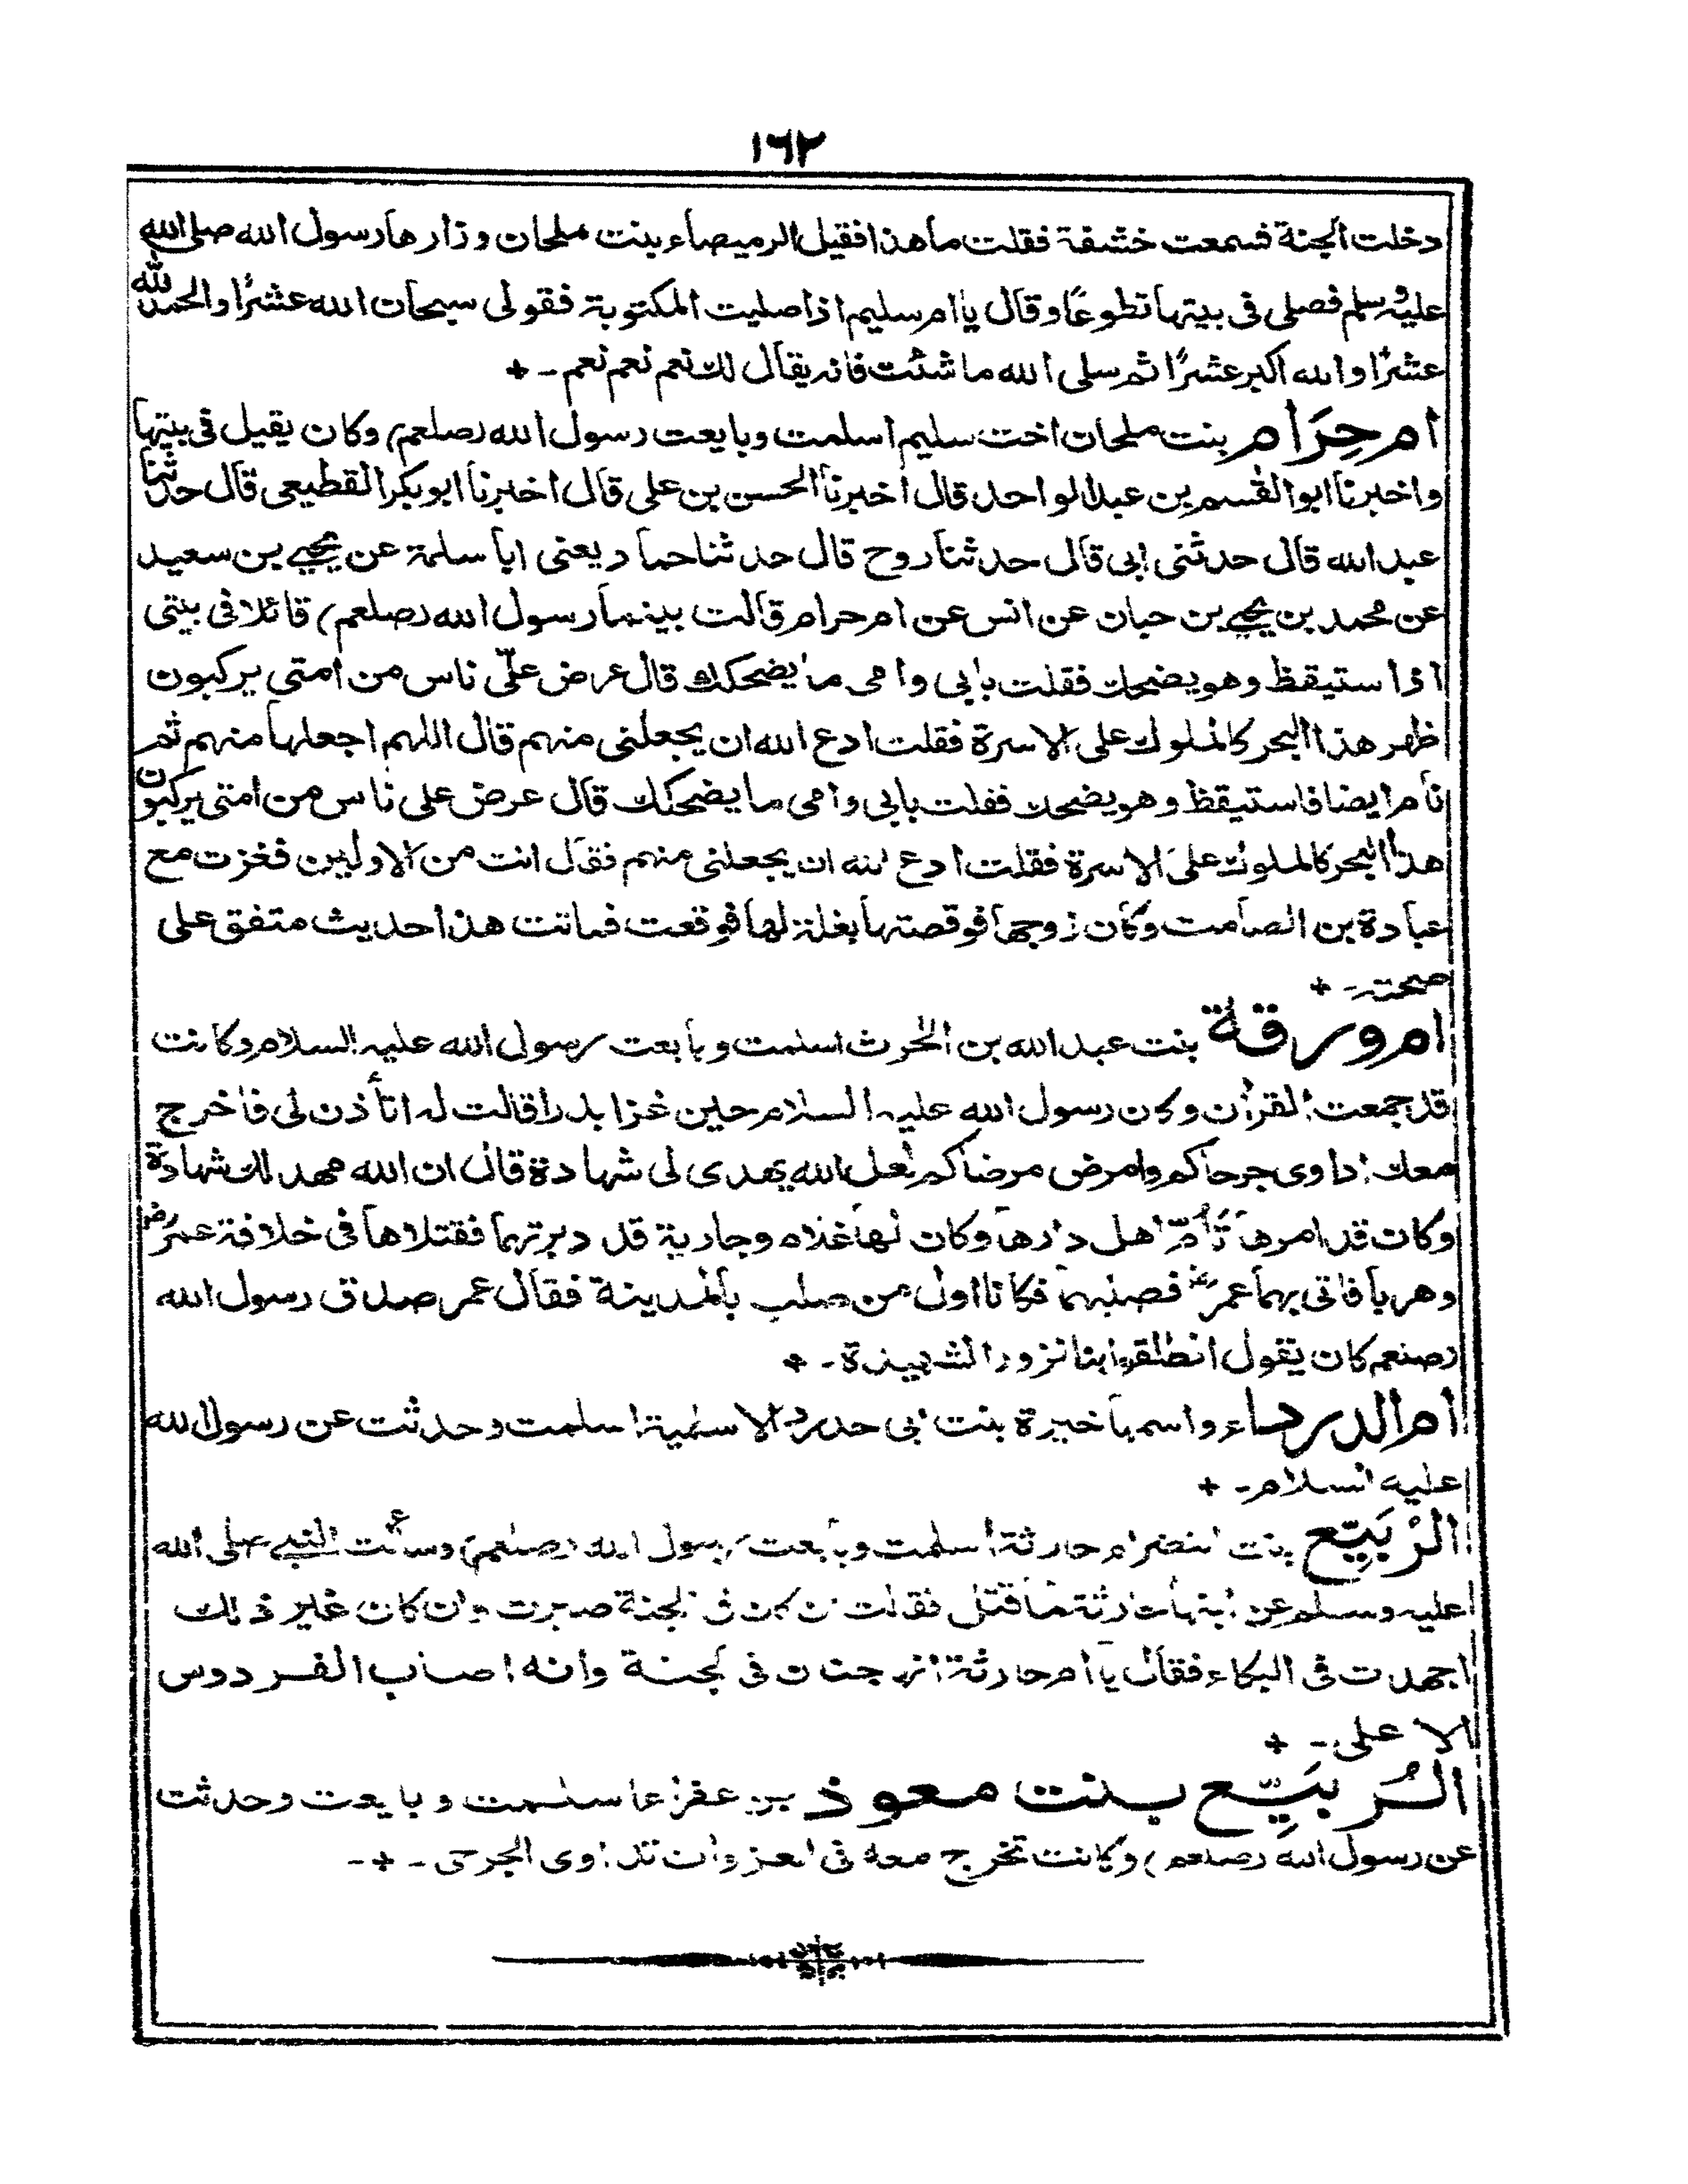 ١٦٢
دخلت الجنة فسمعت خشفة فقلت ما هذا فقيل الرميصاء بنت ملحان وزارها رسول الله صلى الله
عليه وسلم فصلى فى بيتها تطوعًا وقال يا ام سليم اذا صليت المكتوبة فقولى سبحان الله عشرًا والحمد لله
عشرًا والله اكبر عشرًا ثم سلى الله ما شئت فانه يقال لك نعم نعم نعم ـ +
ام حِرَام بنت ملحان اخت سليم اسلمت وبايعت رسول الله (صلعم) وكان يقيل فى بيتها
واخبرنا ابوالقسم بن عبدالواحد قال اخبرنا الحسن بن على قال اخبرنا ابوبكر القطيعى قال حدثنا
عبدالله قال حدثنى ابى قال حدثنا روح قال حدثنا حماد يعنى ابا سلمة عن يحيى بن سعيد
عن محمد بن يحيى بن حبان عن انس عن ام حرام قالت بينما رسول الله (صلعم) قائلا فى بيتى
اذا ستيقظ وهو يضحك فقلت بابى وامى ما يضحكك قال عرض علّى ناس من امتى يركبون
ظهر هذا البحر كالملوك على الاسرة فقلت ادع الله ان يجعلنى منهم قال اللهم اجعلها منهم ثم
نام ايضا فاستيقظ وهو يضحك فقلت بابى وامى ما يضحكك قال عرض على ناس من امتى يركبون
هذا البحر كالملوك على الاسرة فقلت ادع الله ان يجعلنى منهم فقال انت من الاولين فغزت مع
عبادة بن الصامت وكان زوجها فوقصتها بغلة لها فوقعت فماتت هذا حديث متفق على
صحته ـ +
ام ورقة بنت عبدالله بن الحرث اسلمت وبايعت رسول الله عليه السلام وكانت
قد جمعت القرأن وكان رسول الله عليه السلام حين غزا بدرا قالت له اتأذن لى فاخرج
معك اداوى جرحاكم وامرض مرضاكم لعل الله يهدى لى شهادة قال ان الله مهد لك شهادة
وكان قد امرها تَأُمّ اهل دارها وكان لها غلام وجارية قد دبرتهما فقتلاها فى خلافة عمرؓ
وهربا فاتى بهما عمرؓ فصلبهما فكانا اول من صلب بالمدينة فقال عمر صدق رسول الله
(صلعم كان يقول انطلقوا بنا نزور الشهيدة ـ +
ام الدرداء واسمها خيرة بنت ابى حدرد الاسلمية اسلمت وحدثت عن رسول الله
عليه السلام ـ +
الرُبَيِّع بنت النضر ام حارثة اسلمت وبايعت رسول الله (صلعم) وسألت النبى صلى الله
عليه وسلم عن ابنها حارثة لما قتل فقالت ان كان فى الجنة صبرت وان كان غير ذلك
اجهدت فى البكاء فقال يا ام حارثة انها جنات فى لجنة وانه اصاب الفردوس
الاعلى ـ +
الرُبَيِّع بنت معوذ بن عفراء اسلمت وبايعت وحدثت
عن رسول الله (صلعم) وكانت تخرج معه فى الغزوات تداوى الجرحى ـ + ـ